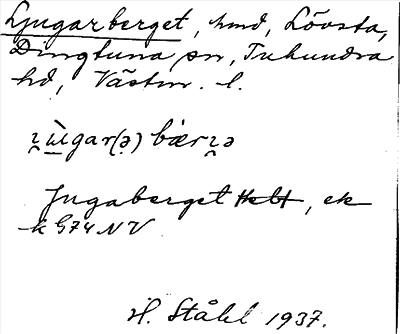 Ljugarberget, hmd, Lövsta,
Dingtuna sn, Tuhundra
hd, Västm. l.
ʒ̨ùgar(ə) bærʒ̨ə
Jugaberget, ek
k G74 NV
H. Ståhl 1937.